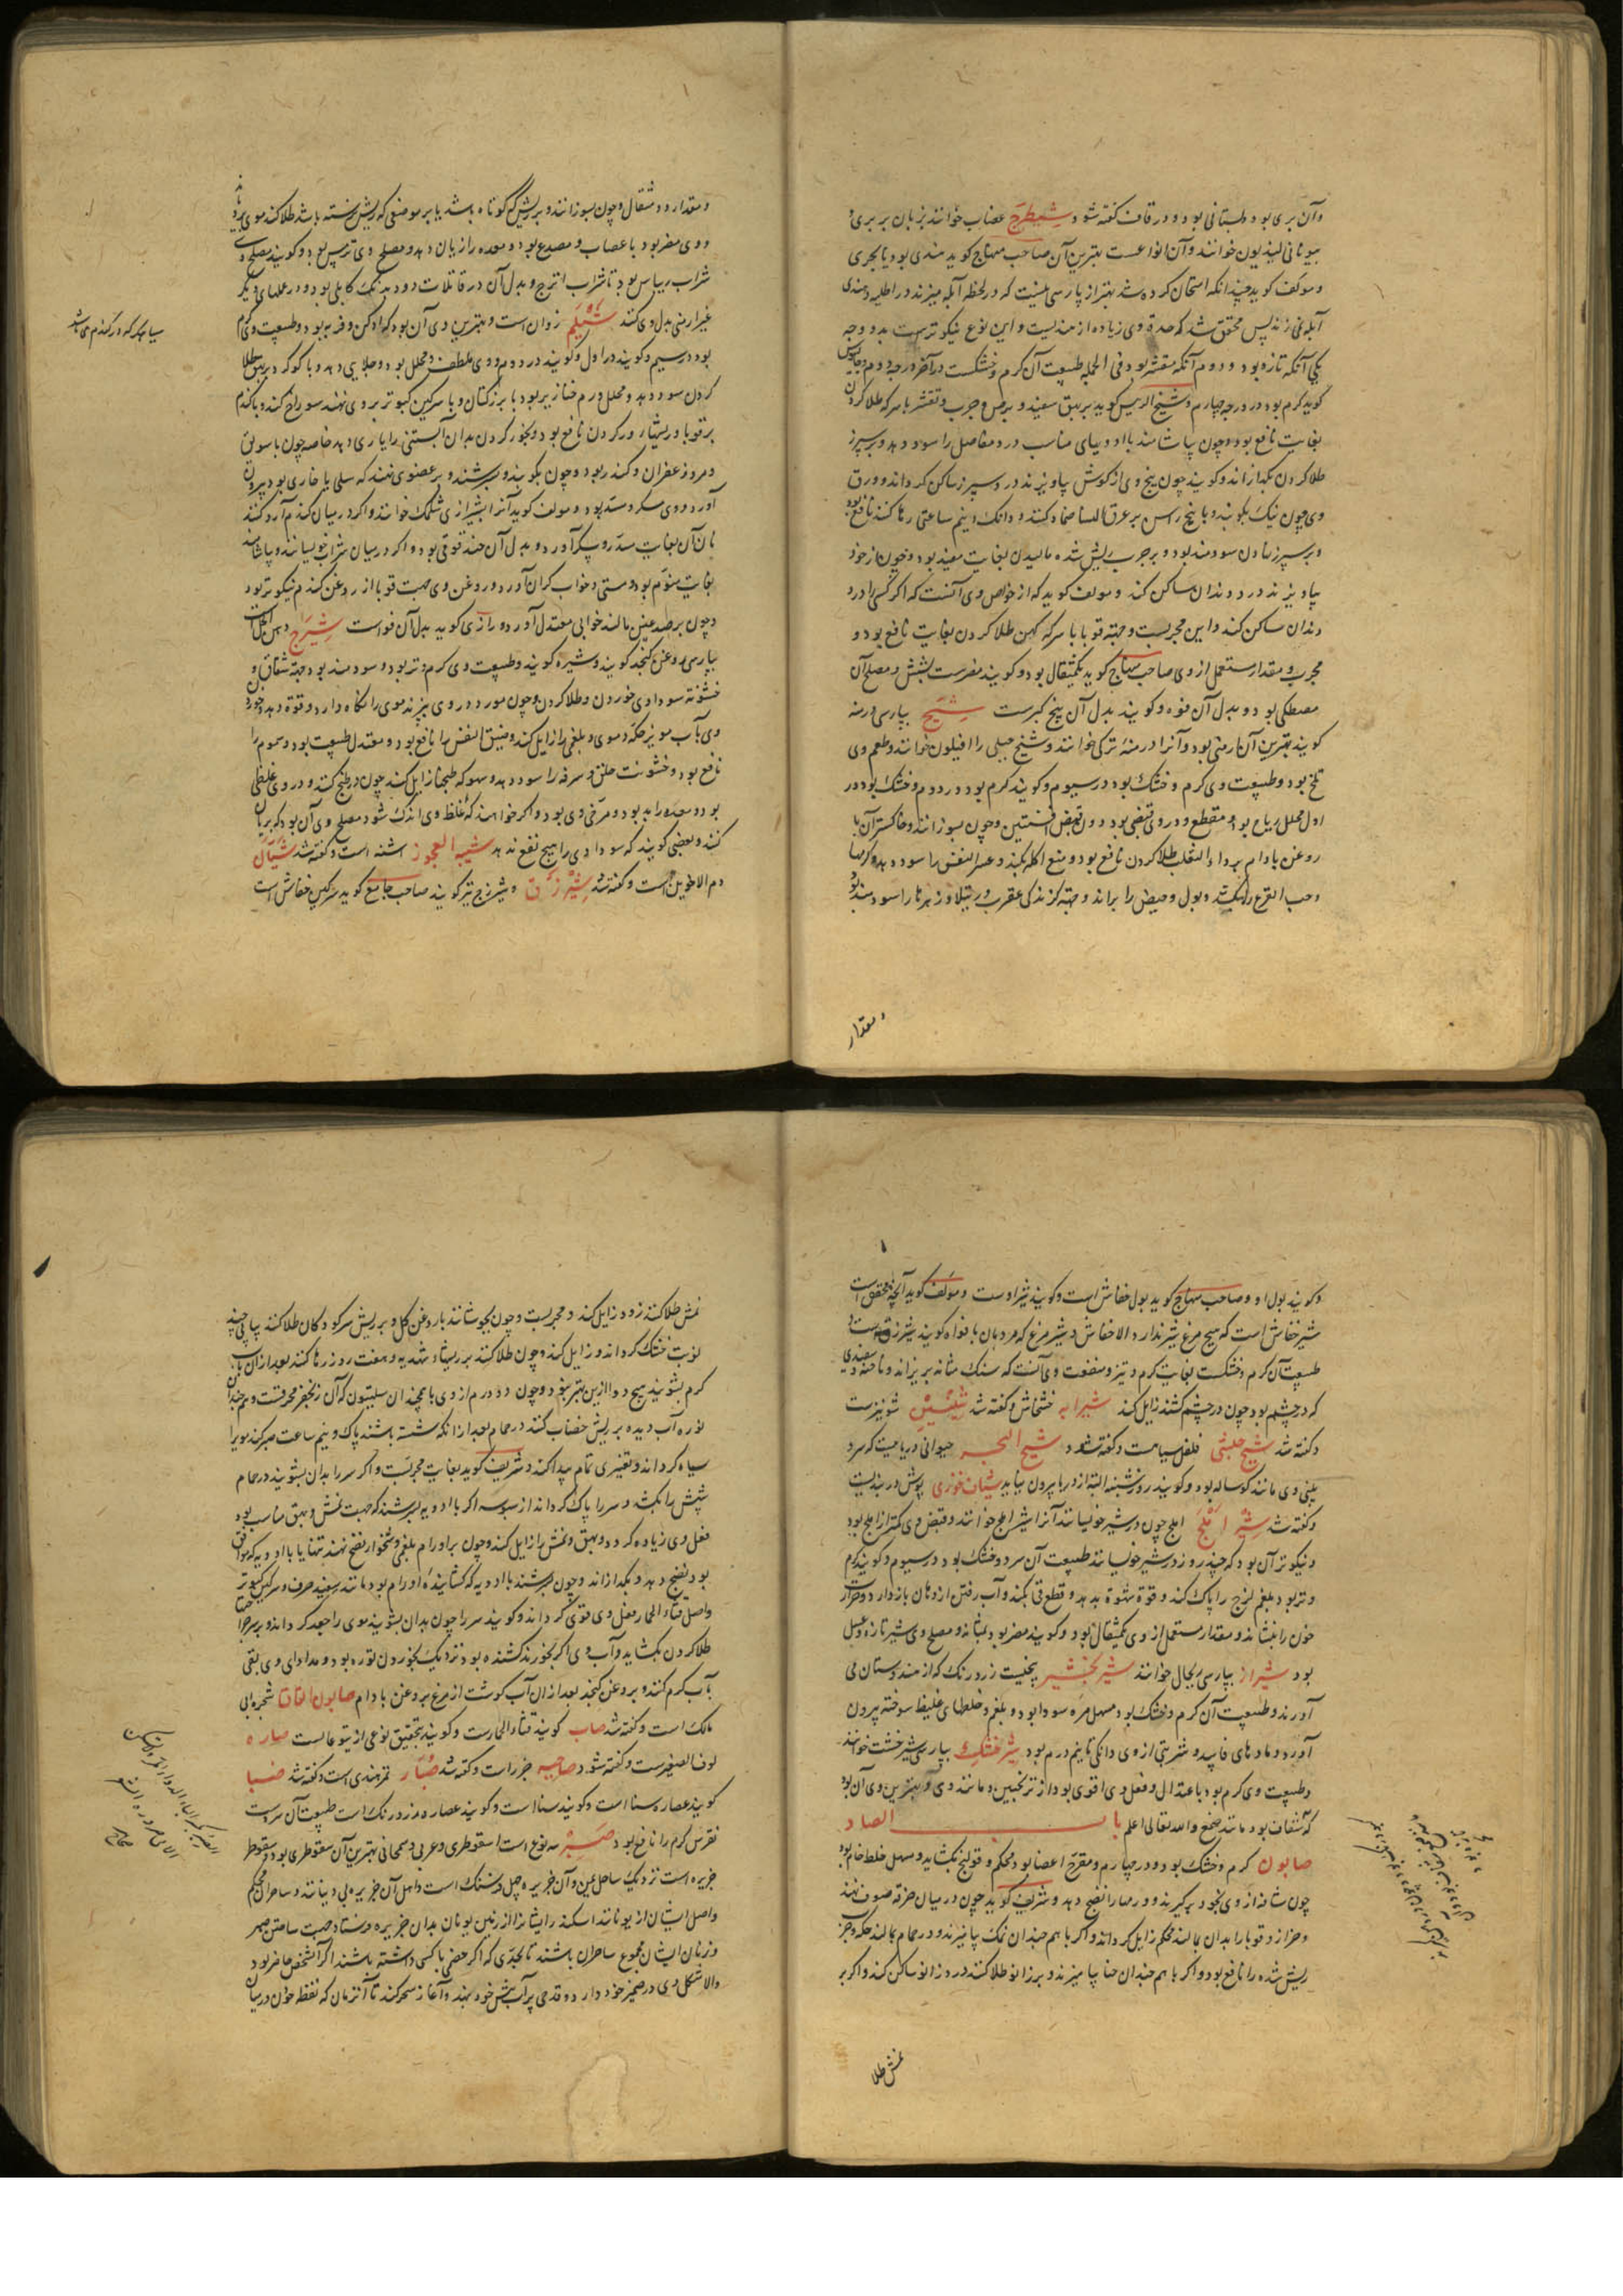 وآن بری بود و بستانی بود و در قاف گفته شود شیطرج عصاب خوانند بزبان بربری و
بیونانی لیدیون خوانند وآن انواعست بهترین آن صاحب منهاج کوید هندی بود یا بحری
و مولف کوید چندانکه امتحان کرده شد بهتر از پارسی نیست که در لحظه آبله میزند در اطلیه و هندی
آبله نمی زند پس محقق شد که حدة وی زیاده از هندیست و این نوع نیکوترست بدو وجه
یکی آنکه تازه بود و دوم آنکه مقشر بود فی الجمله طبیعت آن کرم و خشکست در آخر درجه دوم و جالینوس
کوید کرم بود در درجه چهارم و شیخ الرئیس کوید بر بهق سفید و برص و جرب و تقشر با سرکه طلا کردن
بغایت نافع بود و چون بیاشامند با ادویهای مناسب درد مفاصل را سود دهد و بر سپرز
طلا کردن بکدازاند و کویند چون بیخ وی از کوش بیاویزند درد سپرز ساکن کرداند و ورق
وی چون نیک بکوبند و با بیخ راسن بر عرق النسا ضماد کنند و دانک و نیم ساعتی رها کنند نافع بود
و بر سپرز نهادن سودمند بود و بر جرب ریش شده مالیدن بغایت مفید بود و چون از خود
بیاویزند درد دندان ساکن کند و مولف کوید که از خواص وی آنست که اکر کسی را درد
دندان ساکن کند و این مجربست و جهته قوبا با سرکه کهن طلا کردن بغایت نافع بود و
مجرب و مقدار مستعمل از وی صاحب منهاج کوید یکمثقال بود و کویند مضرست بشش و مصلح آن
مصطکی بود و بدل آن فوه و کویند بدل آن بیخ کبرست شیح بپارسی درمنه
کویند بهترین آن ارمنی بود و آنرا درمنه ترکی خوانند و شیح جبلی را افیلون خوانند و طعم وی
تلخ بود و طبیعت وی کرم و خشک بود در سیوم و کویند کرم بود در دوم و خشک بود در
اول محلل ریاح بود و مقطع و در وی قبضی بود دون قبض افسنتین و چون بسوزانند و خاکستر آن با
روغن بادام بر داء الثعلب طلا کردن نافع بود و منع اکله بکند و عسر النفس را سود دهد و کرمها
و حب القرع را بکشد و بول و حیض را براند و جهته کزندکی عقرب و رتیلا و زهرها را سودمند بود
و مقدار
و مقدار دو مثقال و چون بسوزانند و بر ریش که کوتاه باشد یا بر موضعی که ریش رسته باشد طلا کنند موی برویاند
و وی مضر بود با عصاب و مصدع بود و معده را زیان دهد و مصلح وی ترمس بود و کویند مصلح وی
شراب ریباس بود یا شراب اترج و بدل آن در قاتلات دود برنک کابلی بود و در عملهای دیکر
غیر ارمنی بدل وی کنند شیلم زوان است و بهترین وی آن بود که ادکن و فربه بود و طبیعت وی کرم
بود در سیم و کویند در اول و کویند در دوم و وی ملطف و محلل بود و جلایی دهد و با کوکرد بر بهق طلا
کردن سود دهد و محلل ورم خنازیر بود با بزر کتان و با سرکین کبوتر بر وی نهند سوراخ کند و با کندم
بر قوبا و ریشهاء ورکردن نافع بود و بخور کردن بدان آبستنی را یاری دهد خاصه چون با سویق
و مر و زعفران و کندر بود و چون بکوبند و بسرشند و بر عضوی نهند که سلی یا خاری بود بیرون
آورد و وی مسکر و مسدد بود و مولف کوید آنرا بشیرازی شلمک خوانند و اکر در میان کندم آرد کنند
نان آن بغایت سدر و سکر آورد و بدل آن حندقوقی بود و اکر در میان شراب خویسانند و بیاشامند
بغایت منوم بود و مستی و خواب کران آورد و روغن وی جهت قوبا از روغن کندم نیکوتر بود
و چون بر صدغین مالند خوابی معتدل آورد و رازی کوید بدل آن فواست شیرج دهن الحل است
بپارسی روغن کنجد کویند و شیره کویند و طبیعت وی کرم و تر بود و سودمند بود جهته شقاق و
خشونه سوداوی خوردن و طلا کردن و چون مورد در وی بپزند موی را نکاه دارد و قوة دهد و چون
وی با آب مویز حکه دموی و بلغمی را زایل کند و ضیق النفس را نافع بود و معتدل طبیعت بود و سموم را
نافع بود و خشونت حلق و سرفه را سود دهد و سهوکه طبخها زایل کند چون در طبخ کنند و در وی غلظی
بود و معده را بد بود و مرخی وی بود و اکر خواهند که غلظ وی اندک شود مصلح وی آن بود که بریان
کنند و بعضی کویند که سوداوی را هیچ نفع ندهد شیبة العجوز اشنه است و گفته شد شیان
دم الاخوین است و گفته شد شیر زق و شیرزج نیز کویند صاحب جامع کوید سرکین خفاش است
و کویند بول او و صاحب منهاج کوید بول خفاش است و کویند شیر اوست و مولف کوید آنچه محقق است
شیر خفاش است که هیچ مرغ شیر ندارد الا خفاش و شیر مرغ که مردمان بافواه کویند شیرزق است و
طبیعت آن کرم و خشکست بغایت کرم و تیز و منفعت وی آنست که سنک مثانه بریزاند و ناخنه و سفیدی
که در چشم بود چون در چشم کشند زایل کند شیرابه خشخاش و گفته شد شینیز شونیزست
و گفته شد شیح حبشی فلفل سیاهست و گفته شود شیخ البحر حیوانی دریاییست که سر و
بینی وی مانند کوساله بود و کویند روز شنبه البته از دریا بیرون نیاید شیان خوزی پوش دربندیست
و گفته شد شیر املج املج چون در شیر خویسانند آنرا شیر املج خوانند و قبض وی کمتر از املج بود
و نیکوتر آن بود که چند روز در شیر خویسانند طبیعت آن سرد و خشک بود در سیوم و کویند کرم
و تر بود بلغم لزج را پاک کند و قوة شهوة بدهد و قطع قی بکند و آب رفتن از دهان بازدارد و حرارت
خون را بنشاند و مقدار مستعمل از وی یکمثقال بود و کویند مضر بود بمثانه و مصلح وی شیر تازه و عسل
بود شیراز بپارسی ریچال خوانند شیر بخشیر بیخیست زرد رنک که از هندوستان می
آورند و طبیعت آن کرم و خشک بود مسهل مره سودا بود و بلغم و خلطهای غلیظ سوخته بیرون
آورد و مادهای فاسد و شربتی از وی دانکی تا نیم درم بود شیر خشک بپارسی شیرخشت خوانند
و طبیعت وی کرم بود باعتدال و فعل وی اقوی بود از ترنجبین و مانند وی و بهترین وی آن بود
که شفاف بود مانند صمغ والله تعالی اعلم باب الصاد
صابون کرم و خشک بود در چهارم و مقرح اعضا بود محکم و قولنج بکشاید و مسهل خلط خام بود
چون شافه از وی بخود برکیرند و ورمها را نضج دهد و شریف کوید چون در میان خرقه صوف نهند
و حزاز و قوبا را بدان بمالند محکم زایل کرداند و اکر با هم چندان نمک بیامیزند و در حمام بمالند حکه و جرب
ریش شده را نافع بود و اکر با هم چندان حنا بیامیزند و بر زانو طلا کنند درد زانو ساکن کند و اکر بر
نمش طلا
نمش طلا کنند زود زایل کند و مجربست و چون بجوشانند با روغن کل و بر ریش سر کودکان طلا کنند پیاپی چند
نوبت خشک کرداند و زایل کند و چون طلا کنند بر ریشهاء شهدیه و هفت روز رها کنند بعد از آن بآب
کرم بشویند هیچ دوا ازین بهتر نبود و چون دو درم از وی با همچندان سلیقون که آن زنجفر محرقست و هم چندان
نوره آب دیده بر ریش خضاب کنند در حمام بعد از آنکه شسته باشند پاک و نیم ساعت صبر کنند مویرا
سیاه کرداند و تغییری تمام پیدا کند و شریف کوید بغایت مجربست و اکر سر را بدان بشویند در حمام
شپش را بکشد و سر را پاک کرداند از سبوسه اکر با ادویه بسرشند که جهت نمش و بهق مناسب بود
فعل وی زیاده کردد و بهق و نمش را زایل کند و چون بر اورام بلغمی و دشخوار نضج نهند تنها یا با ادویه که موافق
بود نضج دهد و بکدازاند و چون بسرشند با ادویه که کشاینده اورام بود مانند سفید حرف و سرکین کبوتر
و اصل قثاء الحمار فعل وی قوی کرداند و کویند سر را چون بدان بشویند موی را جعد کرداند و بر جراحتها
طلا کردن بکشاید و آب وی اکر بخورند کشنده بود نزدیک بخوردن نوره بود و مداوای وی بقی
بآب کرم کنند و بروغن کنجد بعد از آن آب کوشت از مرغ بروغن بادام صابون القاقا شجره ابی
مالک است و گفته شد صاب کویند قثاء الحمارست و کویند بتحقیق نوعی از یتوعاتست صاره
لوف الصغیرست و گفته شود صاحبیه جزر است و گفته شد صبار تمر هندی است و گفته شد صبیا
کویند عصاره سنا است و کویند سنا است و کویند عصاره زرد رنک است طبیعت آن سرد است
نقرس کرم را نافع بود صبر سه نوع است اسقوطری و عربی و سمحانی بهترین آن سقوطری بود و سقوطر
جزیره است نزدیک ساحل یمن و آن جزیره چهل فرسنک است و اهل آن جزیره بی دینانند و ساحران محکم
و اصل ایشان از یونانند اسکندر ایشانرا از زمین یونان بدان جزیره فرستاد جهت ساختن صبر
و زنان ایشان مجموع ساحران باشند تا بحدی که اکر خصمی با کسی داشته باشند اکر آنشخص حاضر بود
والا شکل وی در ضمیر خود دارد و قدحی پر آب پیش خود بنهد و آغاز سحر کند تا آنزمان که نقطه خون در میان